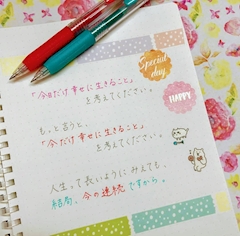 Special
day.
「今だけ幸せに生きること」
を考えてください。
HAPPY
もっと言うと、
「今だけ幸せに生きること」
を考えてください。
人生って長いようにみえても、
結局、今の連続ですから。